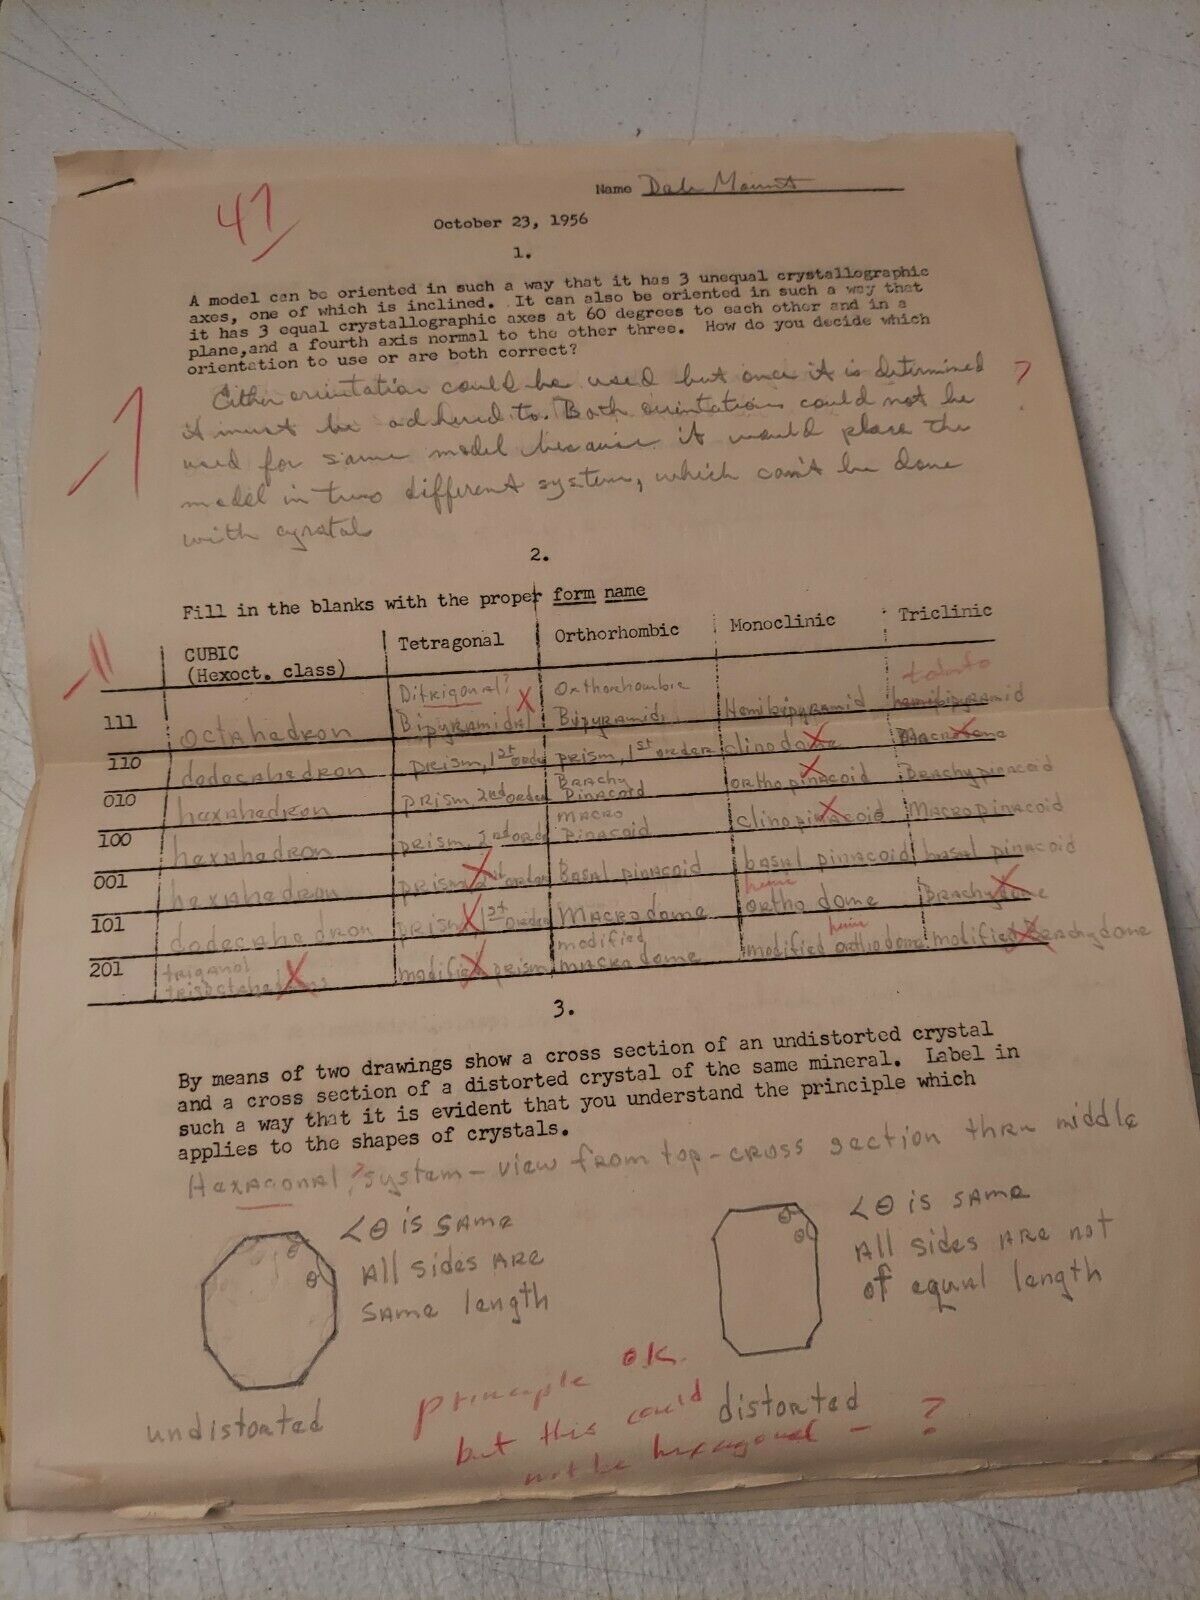 47
Name Dale Mount
October 23, 1956
1.
A model can be oriented in such a way that it has 3 unequal crystallographic
axes, one of which is inclined. It can also be oriented in such a way that
it has 3 equal crystallographic axes at 60 degrees to each other and in a
plane,and a fourth axis normal to the other three. How do you decide which
orientation to use or are both correct?
Either orientation could be used but once it is determined ?
it must be adhered to. Both orientations could not be
used for same model because it would place the
model in two different system, which can't be done
with cyrstal
2.
Fill in the blanks with the proper form name
CUBIC Tetragonal Orthorhombic Monoclinic Triclinic
(Hexoct. class)
Ditrigonal? Orthorhombic
111 octahedron Bipyramidal Bipyramid Hemibipyramid
110 dodecahedron prism, 1st order prism, 1st order clinodome Macrodome
010 hexahedron prism, 2nd order Brachy Pinacoid orthopinacoid Brachypinacoid
100 hexahedron prism, 2nd order macro Pinacoid clinopinacoid Macropinacoid
001 hexahedron prism order Basal pinacoid basal pinacoid basal pinacoid
101 dodecahedron prism, 1st order Macrodome hemi orthodome Brachydome
201 trigonal trisoctahedrons modified prism modified macrodome modified hemi orthodome modified Brachydome
3.
By means of two drawings show a cross section of an undistorted crystal
and a cross section of a distorted crystal of the same mineral. Label in
such a way that it is evident that you understand the principle which
applies to the shapes of crystals.
Hexagonal ? system - view from top - cross section thru middle
θ
θ
<θ is same
All sides are
same length
undistorted
θ
θ
<θ is same
All sides are not
of equal length
distorted
principle OK.
but this could
not be hexagonal - ?